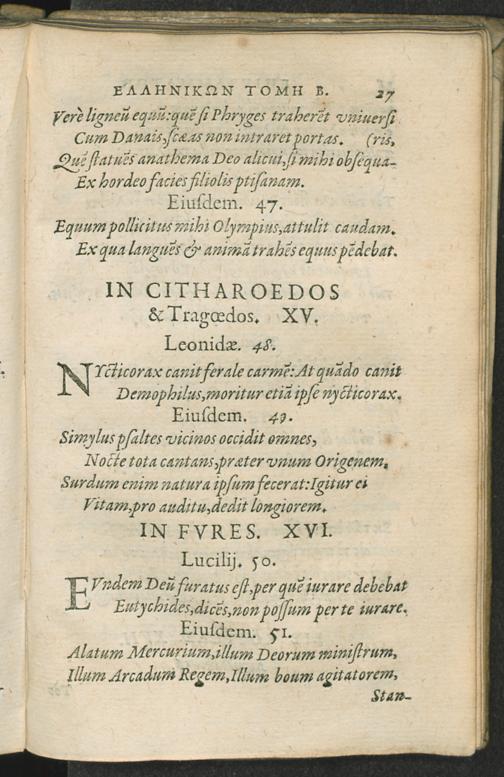 ΕΛΛΗΝΙΚΩΝ ΤΟΜΗ Β. 27
Verè ligneũ equũ: quẽ si Phryges traherẽt vniuersi
Cum Danais, scæas non intraret portas. (ris,
Quẽ statuẽs anathema Deo alicui, si mihi obsequa-
Ex hordeo facies filiolis ptisanam.
Eiusdem. 47.
Equum pollicitus mihi Olympius, attulit caudam.
Ex qua languẽs & animã trahẽs equus pẽdebat.
IN CITHAROEDOS
& Tragœdos. XV.
Leonidæ. 48.
NYcticorax canit ferale carmẽ: At quãdo canit
Demophilus, moritur etiã ipse nycticorax.
Eiusdem. 49.
Simylus psaltes vicinos occidit omnes,
Nocte tota cantans, præter vnum Origenem,
Surdum enim natura ipsum fecerat: Igitur ei
Vitam, pro auditu, dedit longiorem.
IN FVRES. XVI.
Lucilij. 50.
EVndem Deũ furatus est, per quẽ iurare debebat
Eutychides, dicẽs, non possum per te iurare.
Eiusdem. 51.
Alatum Mercurium, illum Deorum ministrum,
Illum Arcadum Regem, Illum boum agitatorem,
Stan-